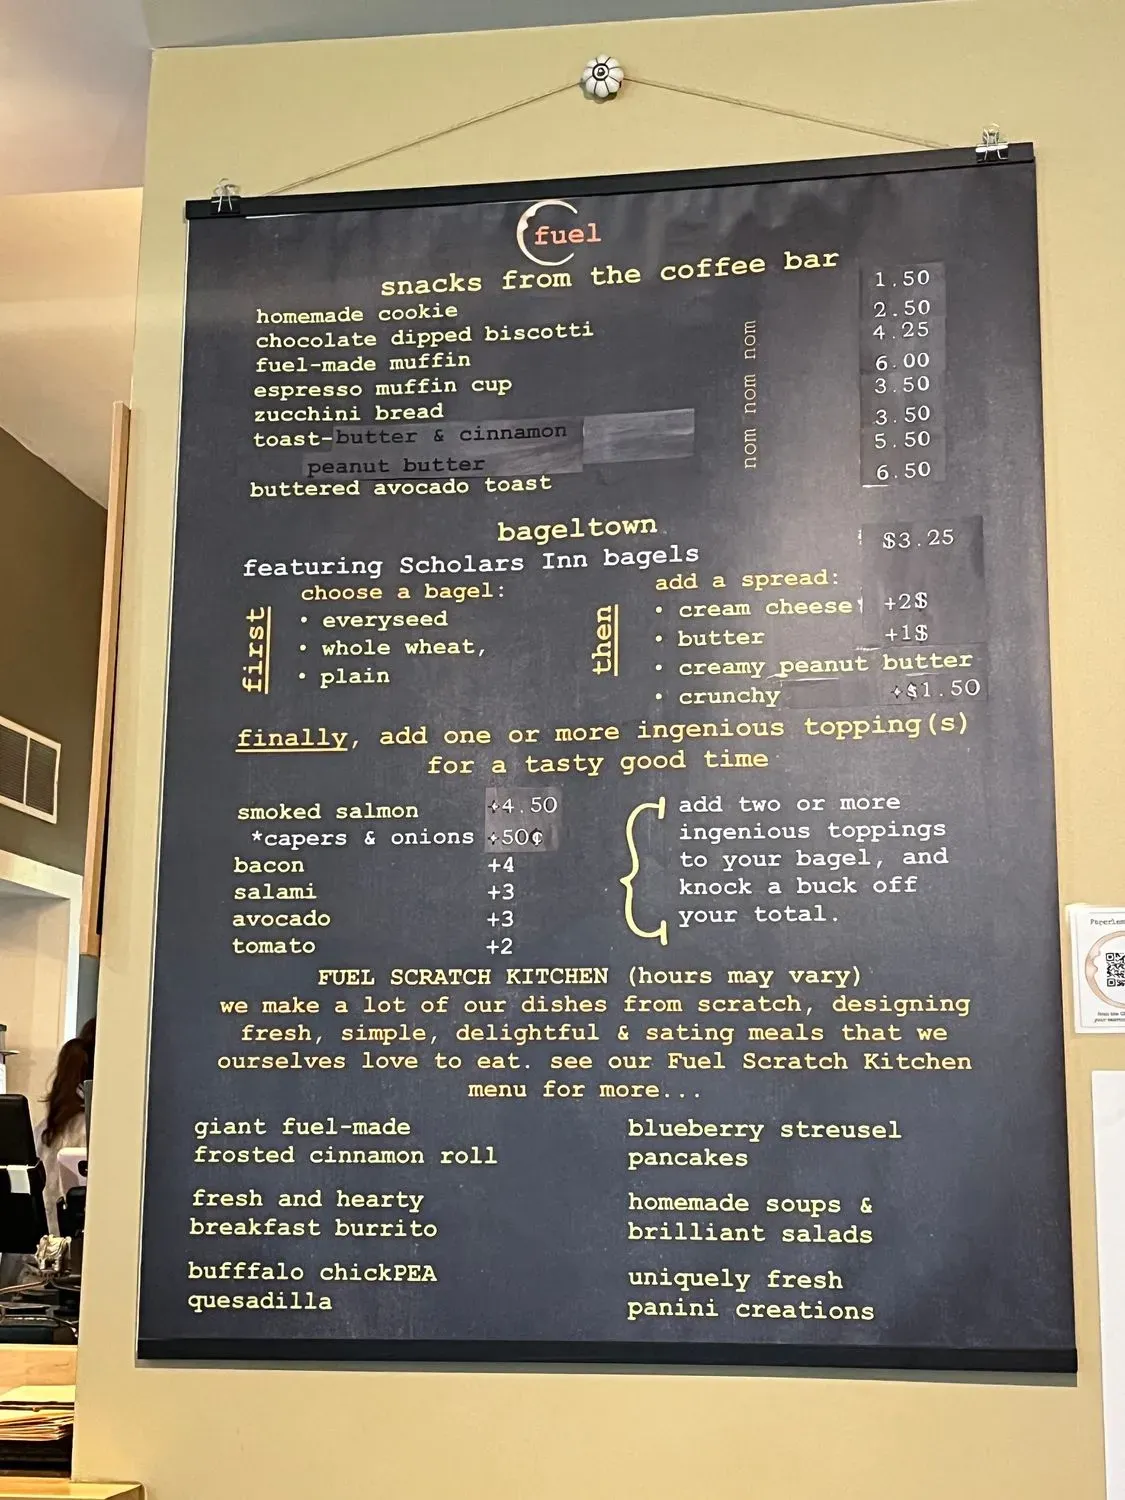 fuel
snacks from the coffee bar
homemade cookie 1.50
chocolate dipped biscotti 2.50
fuel-made muffin 4.25
espresso muffin cup 6.00
zucchini bread 3.50
toast-butter & cinnamon 3.50
peanut butter 5.50
buttered avocado toast 6.50
nom nom nom
bageltown
featuring Scholars Inn bagels $3.25
first
choose a bagel:
• everyseed
• whole wheat,
• plain
then
add a spread:
• cream cheese +2$
• butter +1$
• creamy peanut butter
• crunchy +$1.50
finally, add one or more ingenious topping(s)
for a tasty good time
smoked salmon +4.50
*capers & onions +50¢
bacon +4
salami +3
avocado +3
tomato +2
add two or more
ingenious toppings
to your bagel, and
knock a buck off
your total.
FUEL SCRATCH KITCHEN (hours may vary)
we make a lot of our dishes from scratch, designing
fresh, simple, delightful & sating meals that we
ourselves love to eat. see our Fuel Scratch Kitchen
menu for more...
giant fuel-made
frosted cinnamon roll
fresh and hearty
breakfast burrito
bufffalo chickPEA
quesadilla
blueberry streusel
pancakes
homemade soups &
brilliant salads
uniquely fresh
panini creations